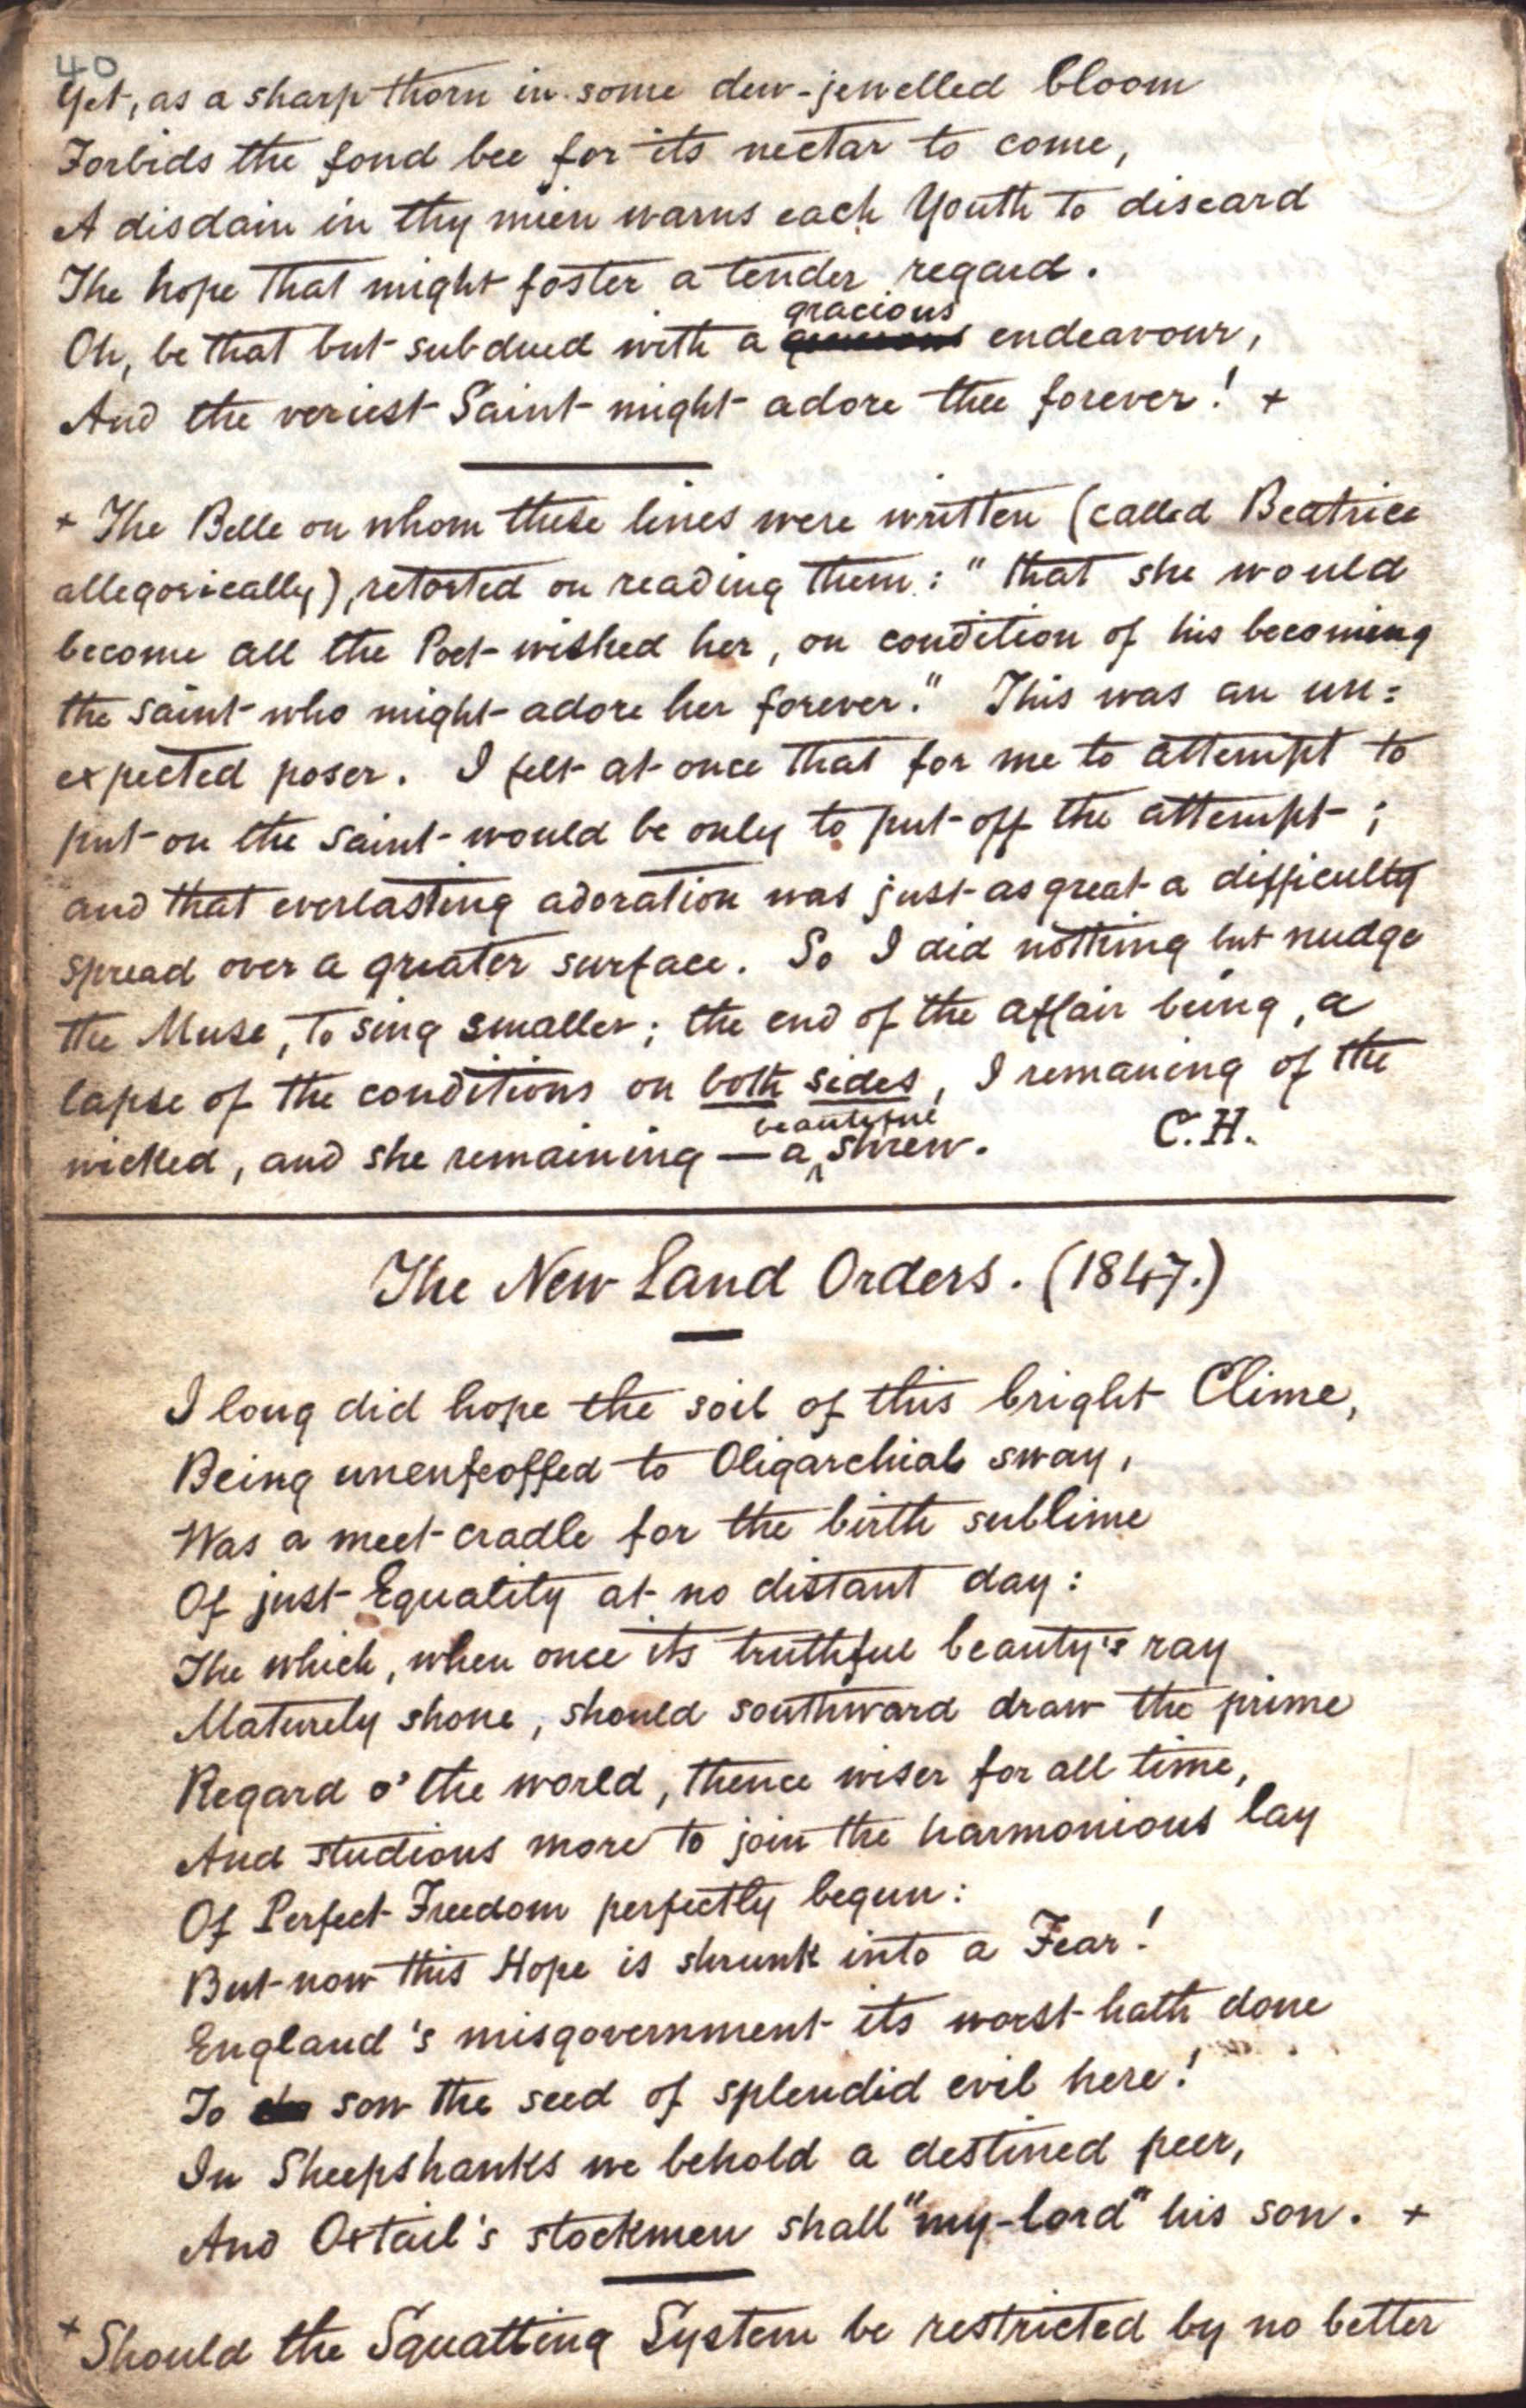 40
Yet, as a sharp thorn in some dew-jewelled bloom
Forbids the fond bee for its nectar to come,
A disdain in thy mien warns each Youth to discard
The hope that might foster a tender regard.
gracious
Oh, be that but subdued with a generous endeavour,
And the veriest Saint might adore thee forever! +
+ The Belle on whom these lines were written (called Beatrice
allegorically), retorted on reading them: "that she would
become all the Poet wished her, on condition of his becoming
the saint who might adore her forever." This was an un=
expected poser. I felt at once that for me to attempt to
put on the saint would be only to put off the attempt;
and that everlasting adoration was just as great a difficulty
spread over a greater surface. So I did nothing but nudge
the Muse, to sing smaller; the end of the affair being, a
lapse of the conditions on both sides, I remaning of the
beautiful
wicked, and she remaining — a ^ shrew. C.H.
The New Land Orders. (1847.)
I long did hope the soil of this bright Clime,
Being unenfeoffed to Oligarchial sway,
Was a meet cradle for the birth sublime
Of just Equality at no distant day:
The which, when once its truthful beauty's ray
Maturely shone, should southward draw the prime
Regard o' the world, thence wiser for all time,
And studious more to join the harmonious lay
Of Perfect Freedom perfectly begun:
But now this Hope is shrunk into a Fear!
England's misgovernment its worst hath done
To sow the seed of splendid evil here!
In Sheepshanks we behold a destined peer,
And Oxtail's stockmen shall "my-lord" his son. +
+ Should the Squatting System be restricted by no better